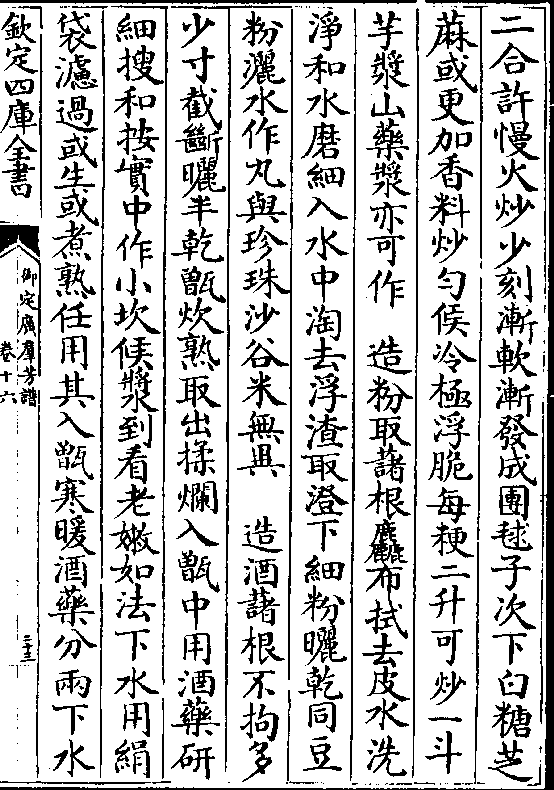 二合許慢火炒少刻漸軟漸發成團毬子次下白糖芝
蔴或更加香料炒勻候冷極浮脆每粳二升可炒一斗
芋漿山藥漿亦可作　造粉取藷根麤布拭去皮水洗
淨和水磨細入水中淘去浮渣取澄下細粉曬乾同豆
粉灑水作丸與珍珠沙谷米無異　造酒藷根不拘多
少寸截斷曬半乾甑炊熟取出揉爛入甑中用酒藥研
細搜和按實中作小坎候漿到看老嫩如法下水用絹
袋濾過或生或煮熟任用其入甑寒暖酒藥分兩下水
欽定四庫全書
御定廣羣芳譜
卷十六
二十三